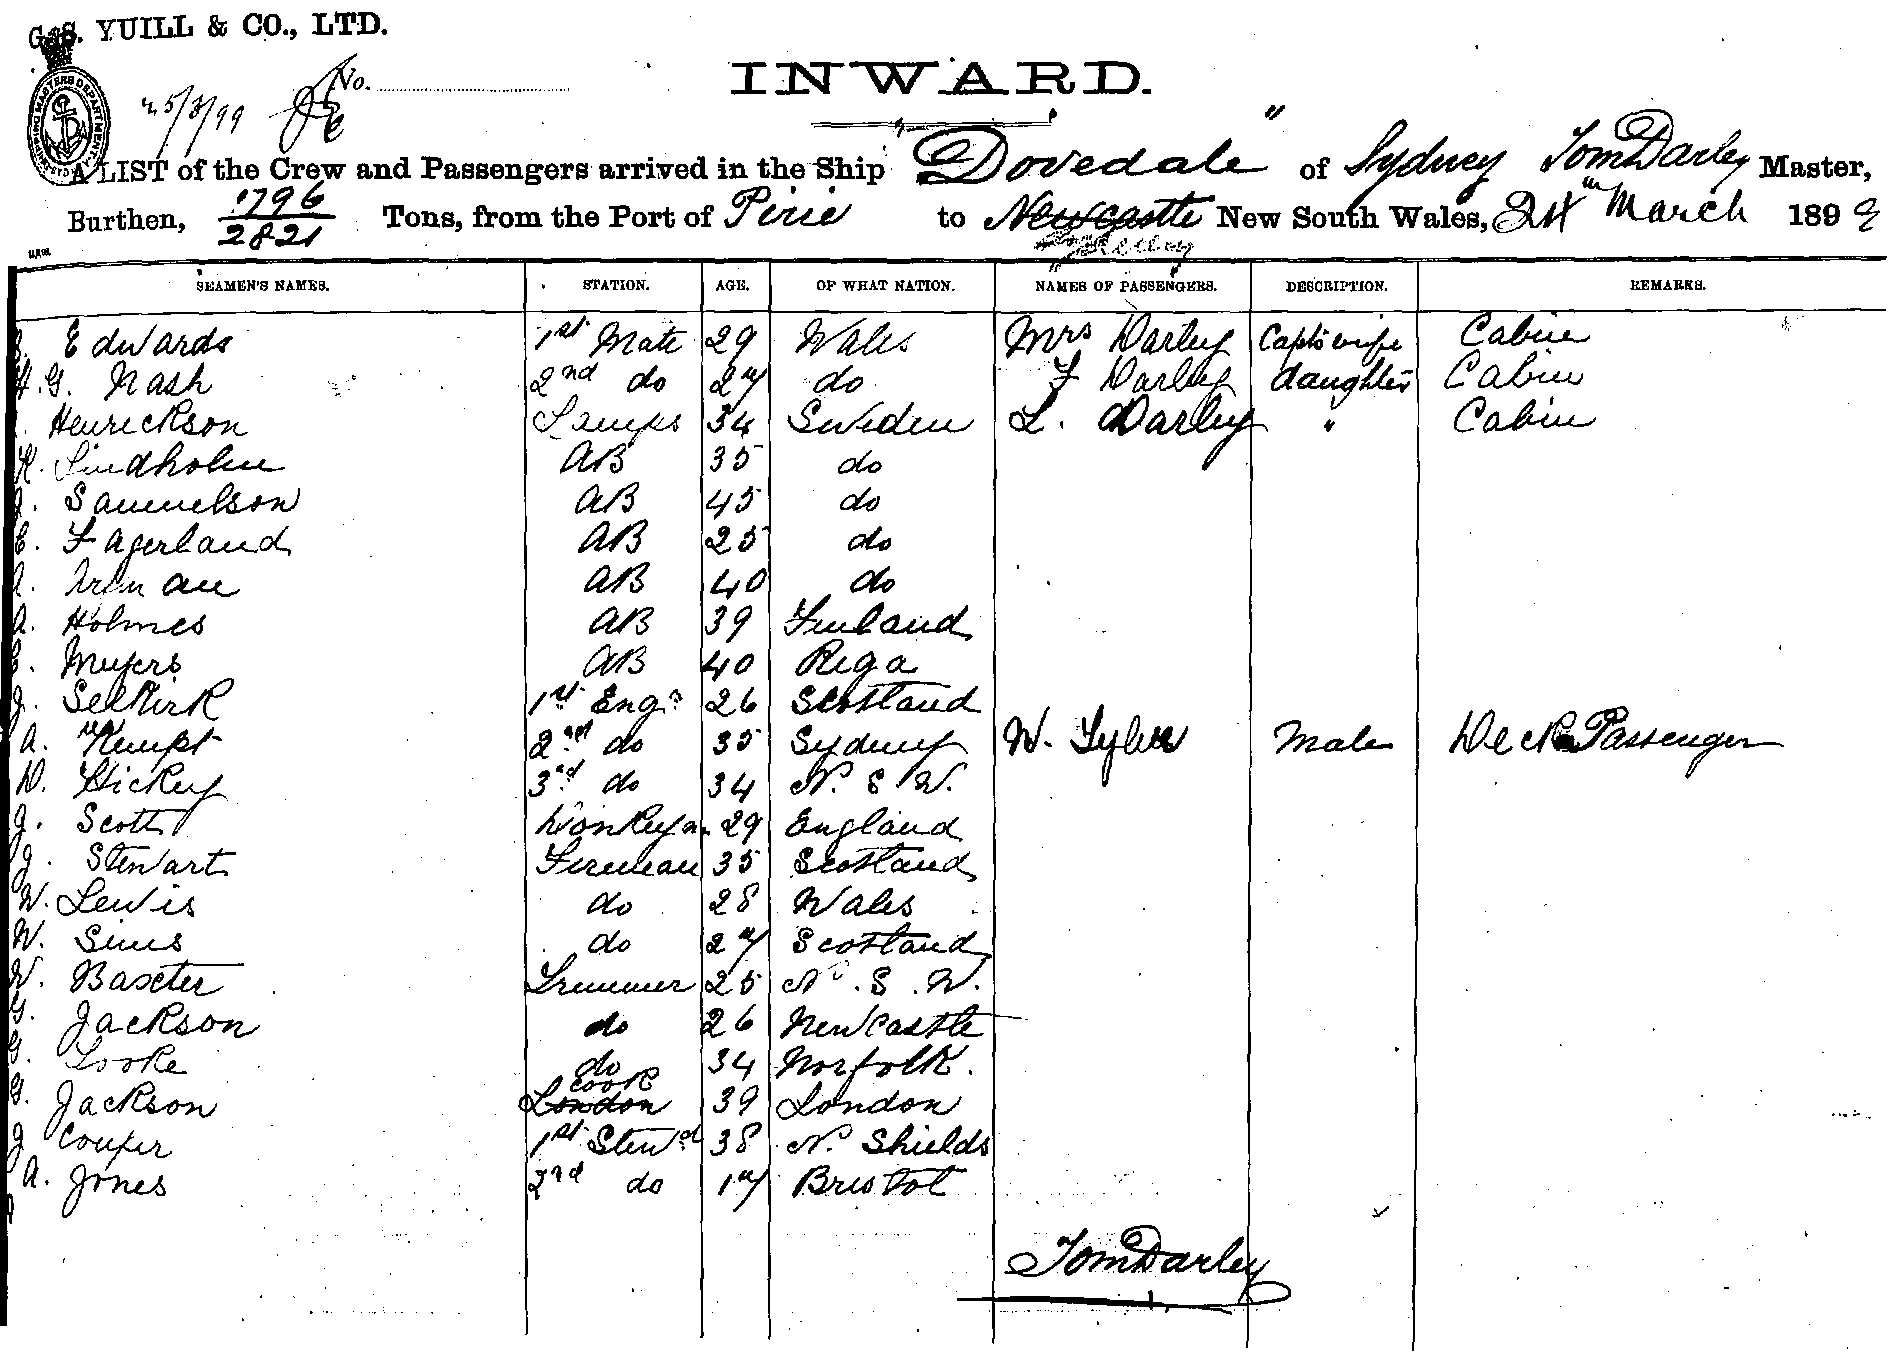 G. S. YUILL & CO., LTD.
No.
25/3/99
INWARD.
A LIST of the Crew and Passengers arrived in the Ship "Dovedale" of Sydney Tom Darley Master,
Burthen, 1796/2821 Tons, from the Port of Pirie to Newcastle New South Wales, March 1899
SEAMEN'S NAMES. STATION. AGE. OF WHAT NATION. NAMES OF PASSENGERS. DESCRIPTION. REMARKS.
Edwards 1st Mate 29 Wales Mrs Darley Capts wife Cabin
H. G. Nash 2nd do 27 do F Darley daughter Cabin
Henrickson Lamps 34 Sweden L. Darley " Cabin
K. Lindholm AB 35 do
J. Samuelson AB 45 do
E. Fagerland AB 25 do
A. AB 40 do
A. Holmes AB 39 Finland
Meyers AB 40 Riga
J. Selkirk 1st Engr 26 Scotland
A. Kempt 2nd do 35 Sydney W. Male Deck Passenger
D. Hickey 3rd do 34 N. S W.
J. Scott Donkeyn 29 England
J. Stewart Fireman 35 Scotland
W. Lewis do 28 Wales
W. Sims do 27 Scotland
W. Baxter Trimmer 25 N. S. W.
G. Jackson do 26 Newcastle
G. Looke do 34 Norfolk.
G. Jackson London Cook 39 London
J Couper 1st Stewd 38 N. Shields
A. Jones 2nd do 17 Bristol
Tom Darley